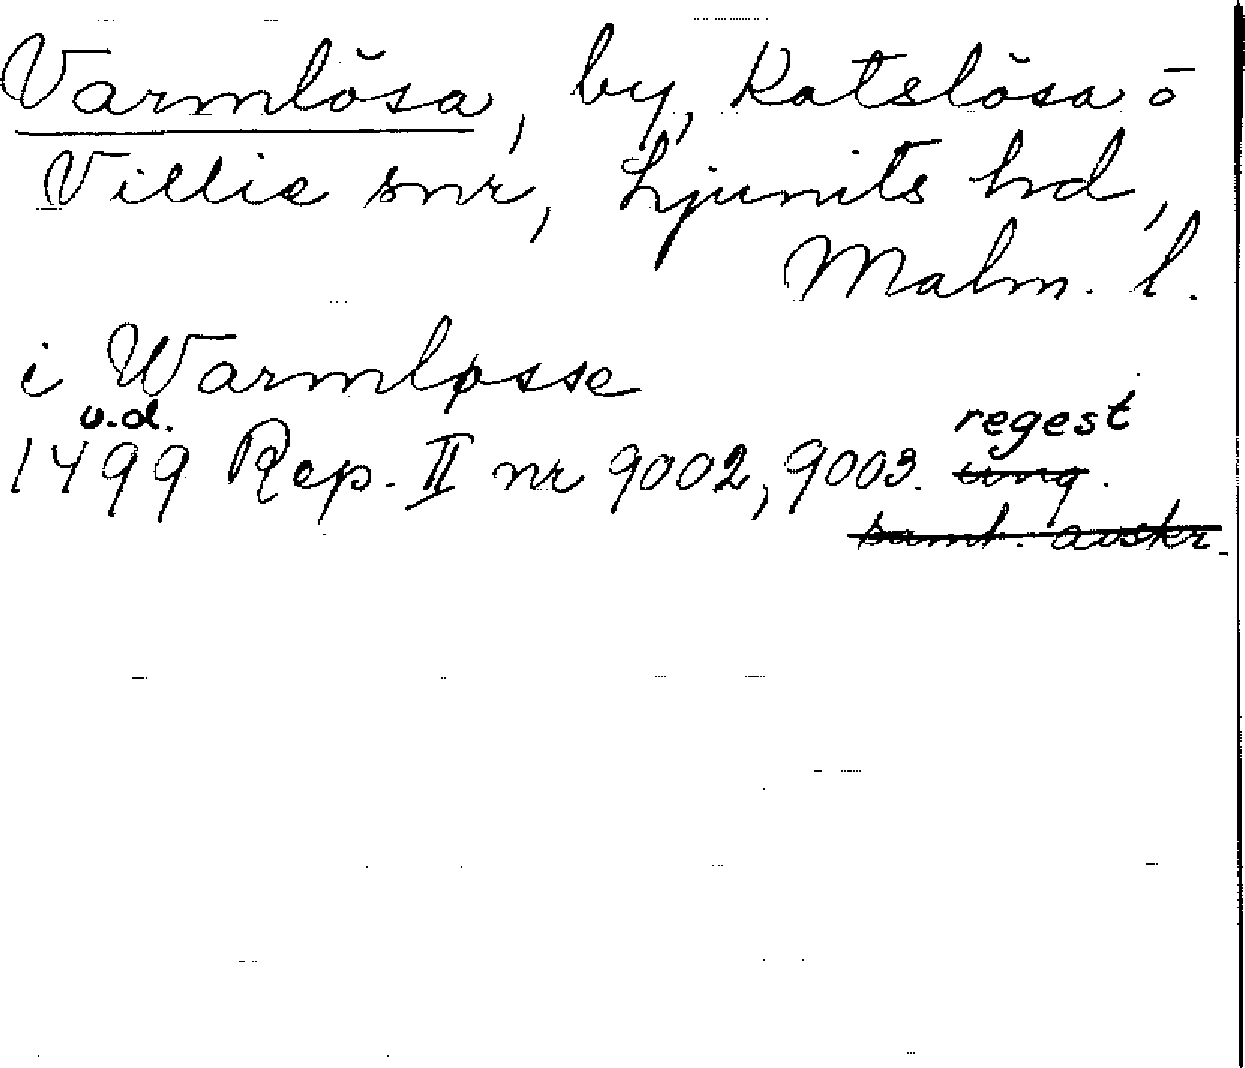 Varmlösa, by, Katslösa o
Villie snr, Ljunits hd,
Malm. l.
i Warmløsse
u.d.
1499 Rep. II nr 9002, 9003. regest
orig.
samt. avskr.